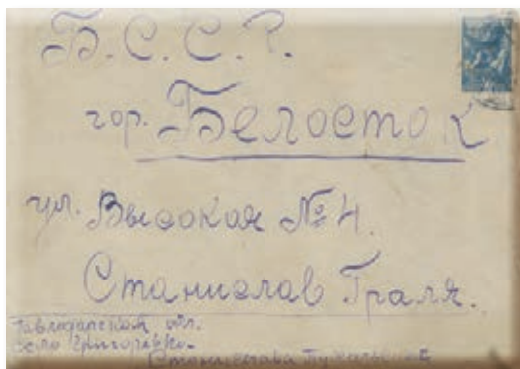 Б.С.С.Р.
гор. Белосток
ул. Высокая № 4.
Станислав Граля.
Павлодарская обл.
село Григоревка
Станислава